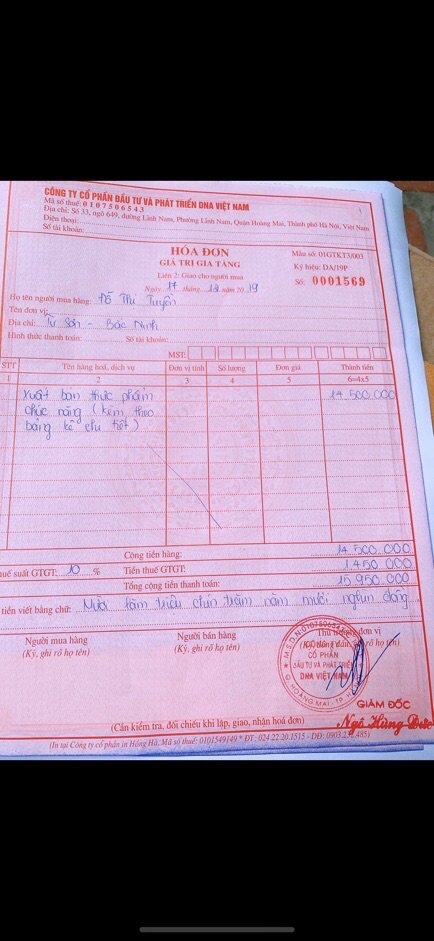 CÔNG TY CỔ PHẦN ĐẦU TƯ VÀ PHÁT TRIỂN DNA VIỆT NAM
Mã số thuế: 0107506543
Địa chỉ: Số 33, ngõ 649, đường Lĩnh Nam, Phường Lĩnh Nam, Quận Hoàng Mai, Thành phố Hà Nội, Việt Nam
Điện thoại:
Số tài khoản:
HÓA ĐƠN
GIÁ TRỊ GIA TĂNG
Liên 2: Giao cho người mua
Ngày 17 tháng 12 năm 2019
Mẫu số: 01GTKT3/003
Ký hiệu: DA/19P
Số: 0001569
Họ tên người mua hàng: Đỗ Thị Tuyển
Tên đơn vị:
Địa chỉ: Từ Sơn - Bắc Ninh
Hình thức thanh toán: Số tài khoản:
MST:
STT Tên hàng hoá, dịch vụ Đơn vị tính Số lượng Đơn giá Thành tiền
1 2 3 4 5 6=4x5
Xuất bán thực phẩm 14.500.000
chức năng (kèm theo
bảng kê chi tiết)
Cộng tiền hàng: 14.500.000
uế suất GTGT: 10 % Tiền thuế GTGT: 1.450.000
Tổng cộng tiền thanh toán: 15.950.000
tiền viết bằng chữ: Mười lăm triệu chín trăm năm mươi nghìn đồng
Người mua hàng Người bán hàng Thủ trưởng đơn vị
(Ký, ghi rõ họ tên) (Ký, ghi rõ họ tên)
CÔNG TY
CỔ PHẦN
ĐẦU TƯ VÀ PHÁT TRIỂN
DNA VIỆT NAM
GIÁM ĐỐC
Ngô Hùng Đức
(Cần kiểm tra, đối chiếu khi lập, giao, nhận hoá đơn)
(In tại Công ty cổ phần in Hồng Hà; Mã số thuế: 0101549149 * ĐT: 024.22.20.1515 - DĐ: